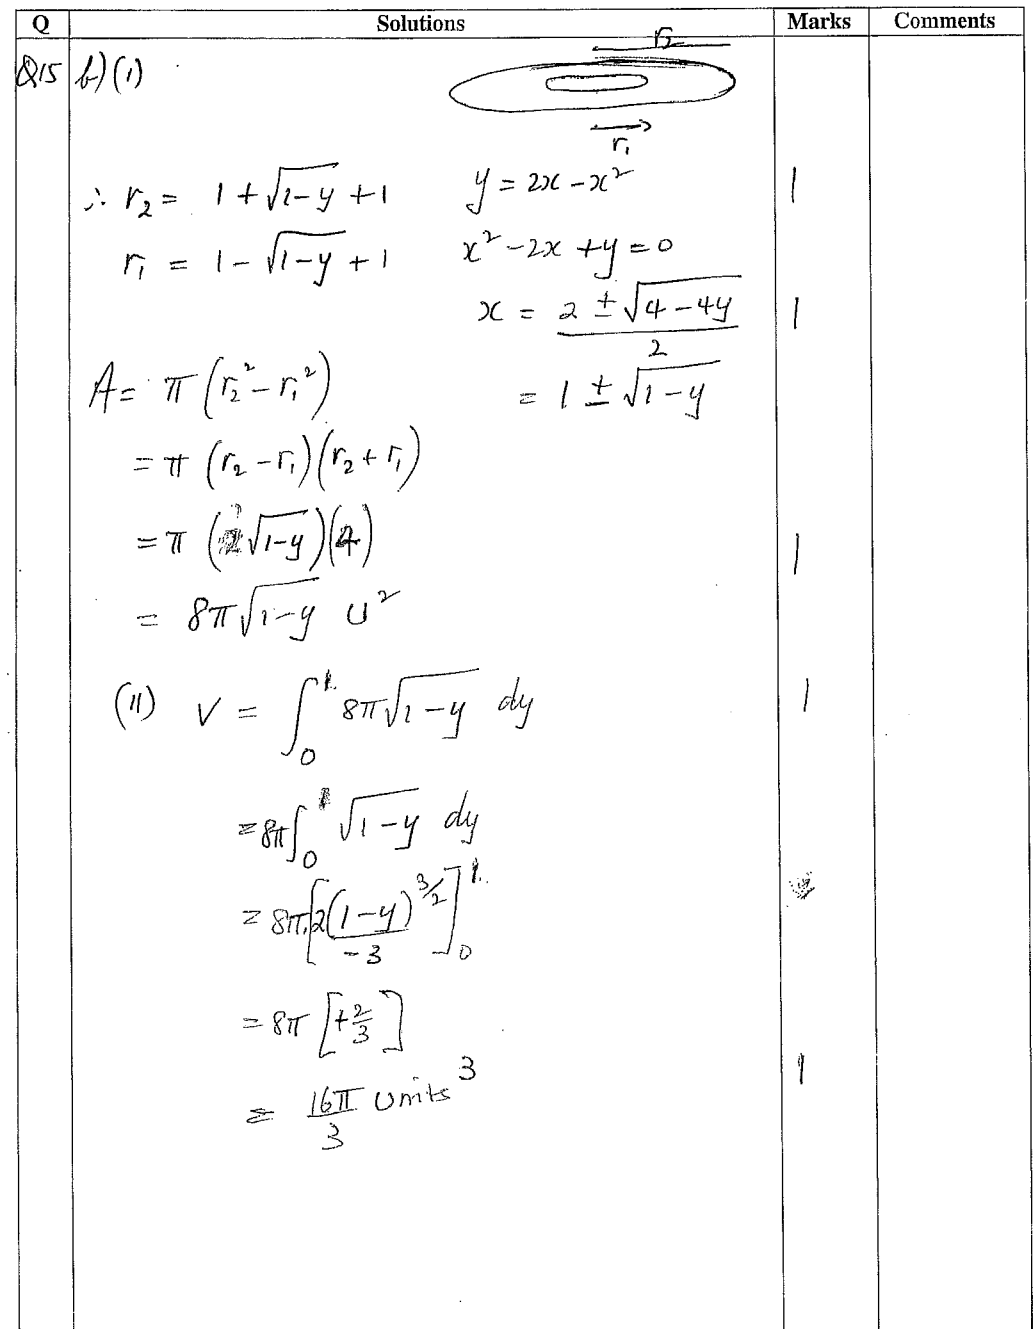 Q Solutions Marks Comments
Q15 b)(i)
r₂
r₁
∴ r₂ = 1 + √(1-y) + 1 y = 2x - x² 1
r₁ = 1 - √(1-y) + 1 x² - 2x + y = 0
x = (2 ± √(4 - 4y))/2 1
A = π(r₂² - r₁²) = 1 ± √(1-y)
= π(r₂ - r₁)(r₂ + r₁)
= π(2√(1-y))(4) 1
= 8π√(1-y) u²
(ii) V = ∫₀¹ 8π√(1-y) dy 1
= 8π∫₀¹ √(1-y) dy
= 8π.[2(1-y)^(3/2)/-3]₀¹
= 8π[+2/3]
= 16π/3 units³ 1